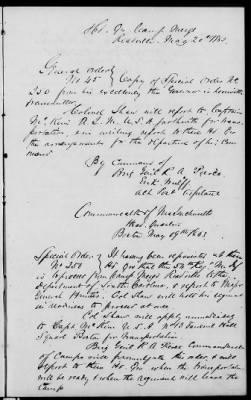 Hd. Qrs Camp Meigs
Readville May 20th 1863.
General Order
No 45 } Copy of Special Order No
250 from his excellency the Governor is herewith
transmitted
Colonel Shaw will report to Captain
Mc Kim A. Q. M. U. S. A. forthwith for trans-
portation, and in writing report to these Hd. Qrs
the arrangements for the departure of his Com-
mand
By Command of
Brig Genl R. A. Peirce
Act Post
Commonwealth of Massachusetts
Head Quarters
Boston May 19th 1863
Special Order } It having been represented at these
No 250 Hd Qrs that the 54th Regt
is from Camp Meigs Readville to the
department of South Carolina, & report to Major
General Hunter. Col Shaw will hold his regiment
in readiness to proceed at once
Col Shaw will apply
to Capt. Mc Kim U. S. A. No
Square Boston for transportation
Brig Genl R A Peirce Commandant
of Camps will promulgate this order, & will
report to these Hd. Qrs when the transportation
will be ready & when the regiment will leave the
Camp